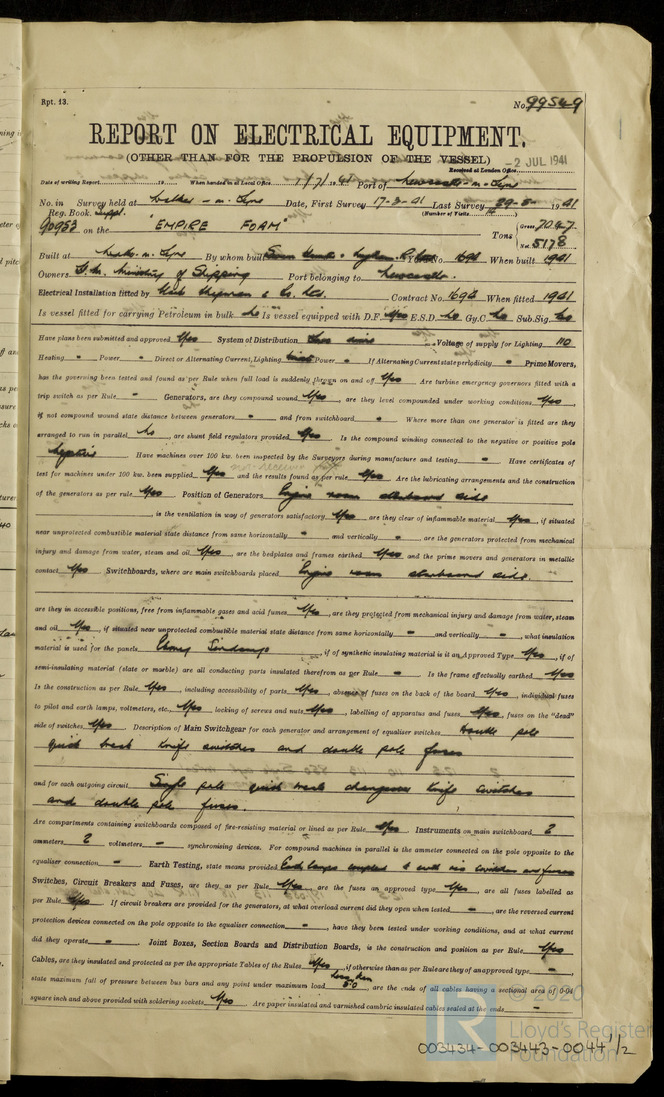 Rpt. 13. No. 99549
REPORT ON ELECTRICAL EQUIPMENT.
(OTHER THAN FOR THE PROPULSION OF THE VESSEL)
-2 JUL 1941
Received at London Office
Date of writing Report 19 When handed in at Local Office 1/7/1941 Port of Newcastle-on-Tyne
No. in Survey held at Date, First Survey 17-3-41 Last Survey 29-5-1941
Reg. Book. Suppl. (Number of Visits )
90953 on the "EMPIRE FOAM" Tons Gross 7047 Net 5178
Built at By whom built Yard No. When built 1941
Owners Ministry of Shipping Port belonging to Newcastle.
Electrical Installation fitted by Contract No. When fitted 1941
Is vessel fitted for carrying Petroleum in bulk No Is vessel equipped with D.F. Yes E.S.D. No Gy.C. No Sub.Sig. No
Have plans been submitted and approved Yes System of Distribution Two wire Voltage of supply for Lighting 110
Heating - Power - Direct or Alternating Current, Lighting Direct Power - If Alternating Current state periodicity - Prime Movers,
has the governing been tested and found as per Rule when full load is suddenly thrown on and off Yes Are turbine emergency governors fitted with a
trip switch as per Rule - Generators, are they compound wound Yes, are they level compounded under working conditions Yes,
if not compound wound state distance between generators - and from switchboard - Where more than one generator is fitted are they
arranged to run in parallel No, are shunt field regulators provided Yes Is the compound winding connected to the negative or positive pole
Negative Have machines over 100 kw. been inspected by the Surveyors during manufacture and testing - Have certificates of
test for machines under 100 kw. been supplied Yes and the results found as per rule Yes Are the lubricating arrangements and the construction
of the generators as per rule Yes Position of Generators Engine room starboard side
is the ventilation in way of generators satisfactory Yes are they clear of inflammable material Yes, if situated
near unprotected combustible material state distance from same horizontally - and vertically -, are the generators protected from mechanical
injury and damage from water, steam and oil Yes, are the bedplates and frames earthed Yes and the prime movers and generators in metallic
contact Yes Switchboards, where are main switchboards placed Engine room starboard side.
are they in accessible positions, free from inflammable gases and acid fumes Yes, are they protected from mechanical injury and damage from water, steam
and oil Yes, if situated near unprotected combustible material state distance from same horizontally - and vertically -, what insulation
material is used for the panels Ebony Sindanyo, if of synthetic insulating material is it an Approved Type Yes, if of
semi-insulating material (slate or marble) are all conducting parts insulated therefrom as per Rule - Is the frame effectually earthed Yes
Is the construction as per Rule Yes, including accessibility of parts Yes, absence of fuses on the back of the board Yes, individual fuses
to pilot and earth lamps, voltmeters, etc., Yes locking of screws and nuts Yes, labelling of apparatus and fuses Yes, fuses on the "dead"
side of switches Yes Description of Main Switchgear for each generator and arrangement of equaliser switches Double pole
quick break knife switches and double pole fuses
and for each outgoing circuit Single pole quick break changeover knife switches
and double pole fuses.
Are compartments containing switchboards composed of fire-resisting material or lined as per Rule Yes Instruments on main switchboard 2
ammeters 2 voltmeters - synchronising devices. For compound machines in parallel is the ammeter connected on the pole opposite to the
equaliser connection - Earth Testing, state means provided Earth lamps coupled to earth via switches and fuses
Switches, Circuit Breakers and Fuses, are they as per Rule Yes, are the fuses an approved type Yes, are all fuses labelled as
per Rule Yes If circuit breakers are provided for the generators, at what overload current did they open when tested -, are the reversed current
protection devices connected on the pole opposite to the equaliser connection -, have they been tested under working conditions, and at what current
did they operate - Joint Boxes, Section Boards and Distribution Boards, is the construction and position as per Rule Yes
Cables, are they insulated and protected as per the appropriate Tables of the Rules Yes, if otherwise than as per Rule are they of an approved type -,
state maximum fall of pressure between bus bars and any point under maximum load less than 5.0, are the ends of all cables having a sectional area of 0.04
square inch and above provided with soldering sockets Yes Are paper insulated and varnished cambric insulated cables sealed at the ends -
© 2020
Lloyd's Register
Foundation
003434-003443-0044 1/2